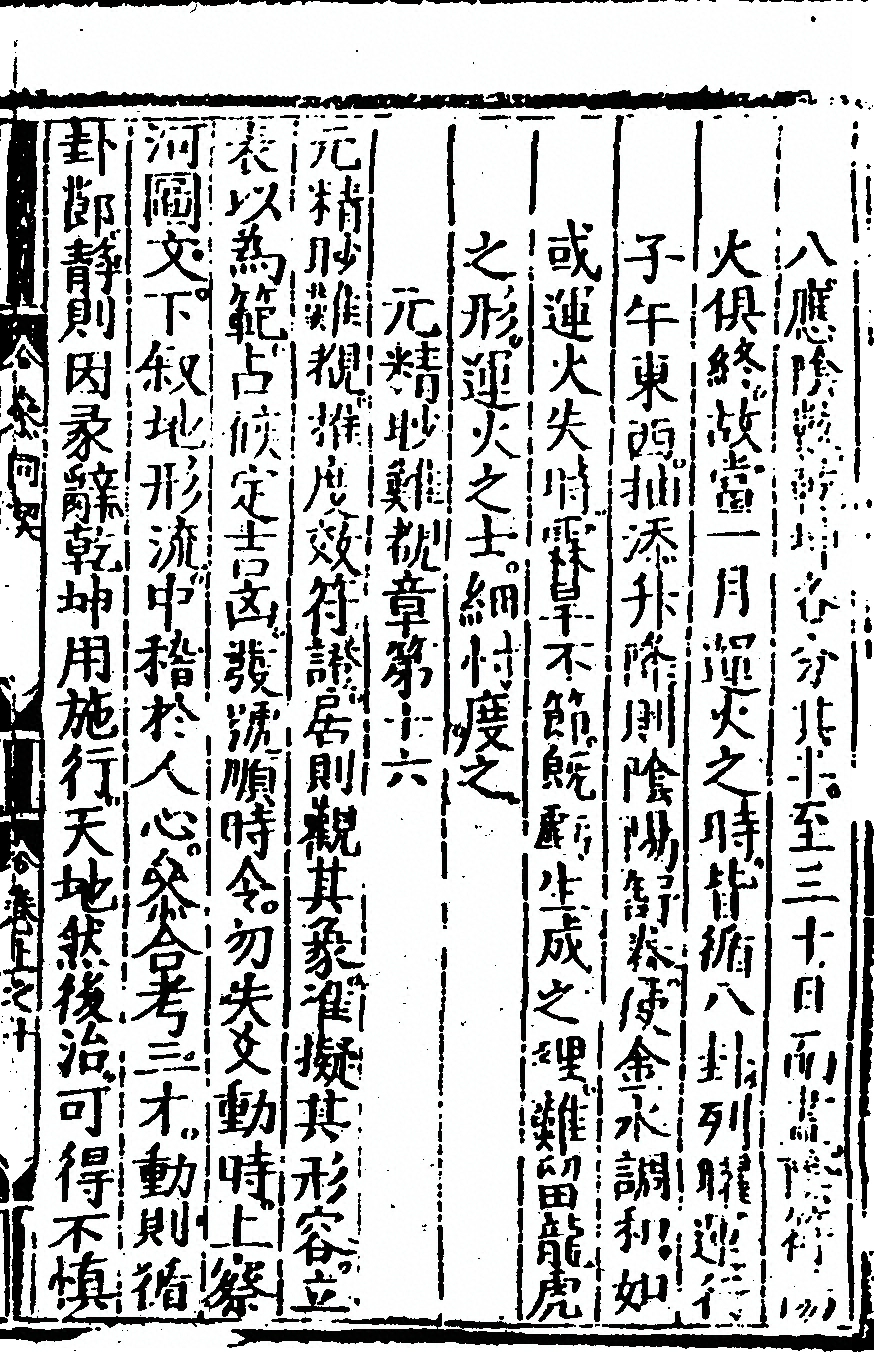 八應陰數 各分其十至三十日而 陽符
火俱終故當一月運火之時皆循八卦列曜運行
子午東西抽添升降則陰陽舒卷使金水調和如
或運火失時霖旱不節既虧生成之理難留龍虎
之形運火之士細忖度之
元精眇難覩章第十六
元精眇難覩推度效符證居則觀其象准擬其形容立
表以為範占候定吉凶發號順時令勿失爻動時上察
河圖文下叙地形流中稽於人心參合考三才動則循
卦節靜則因彖辭乾坤用施行天地然後治可得不慎
參同契 卷上之十